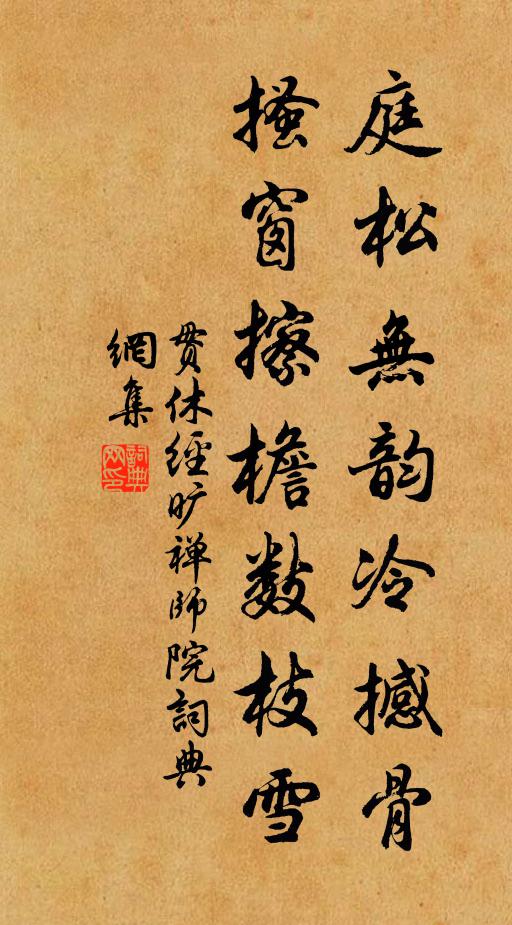 庭松無韵冷撼骨
搔窗擦檐数枝雪
贯休經旷禅師院詞典
網集
詞典
网印